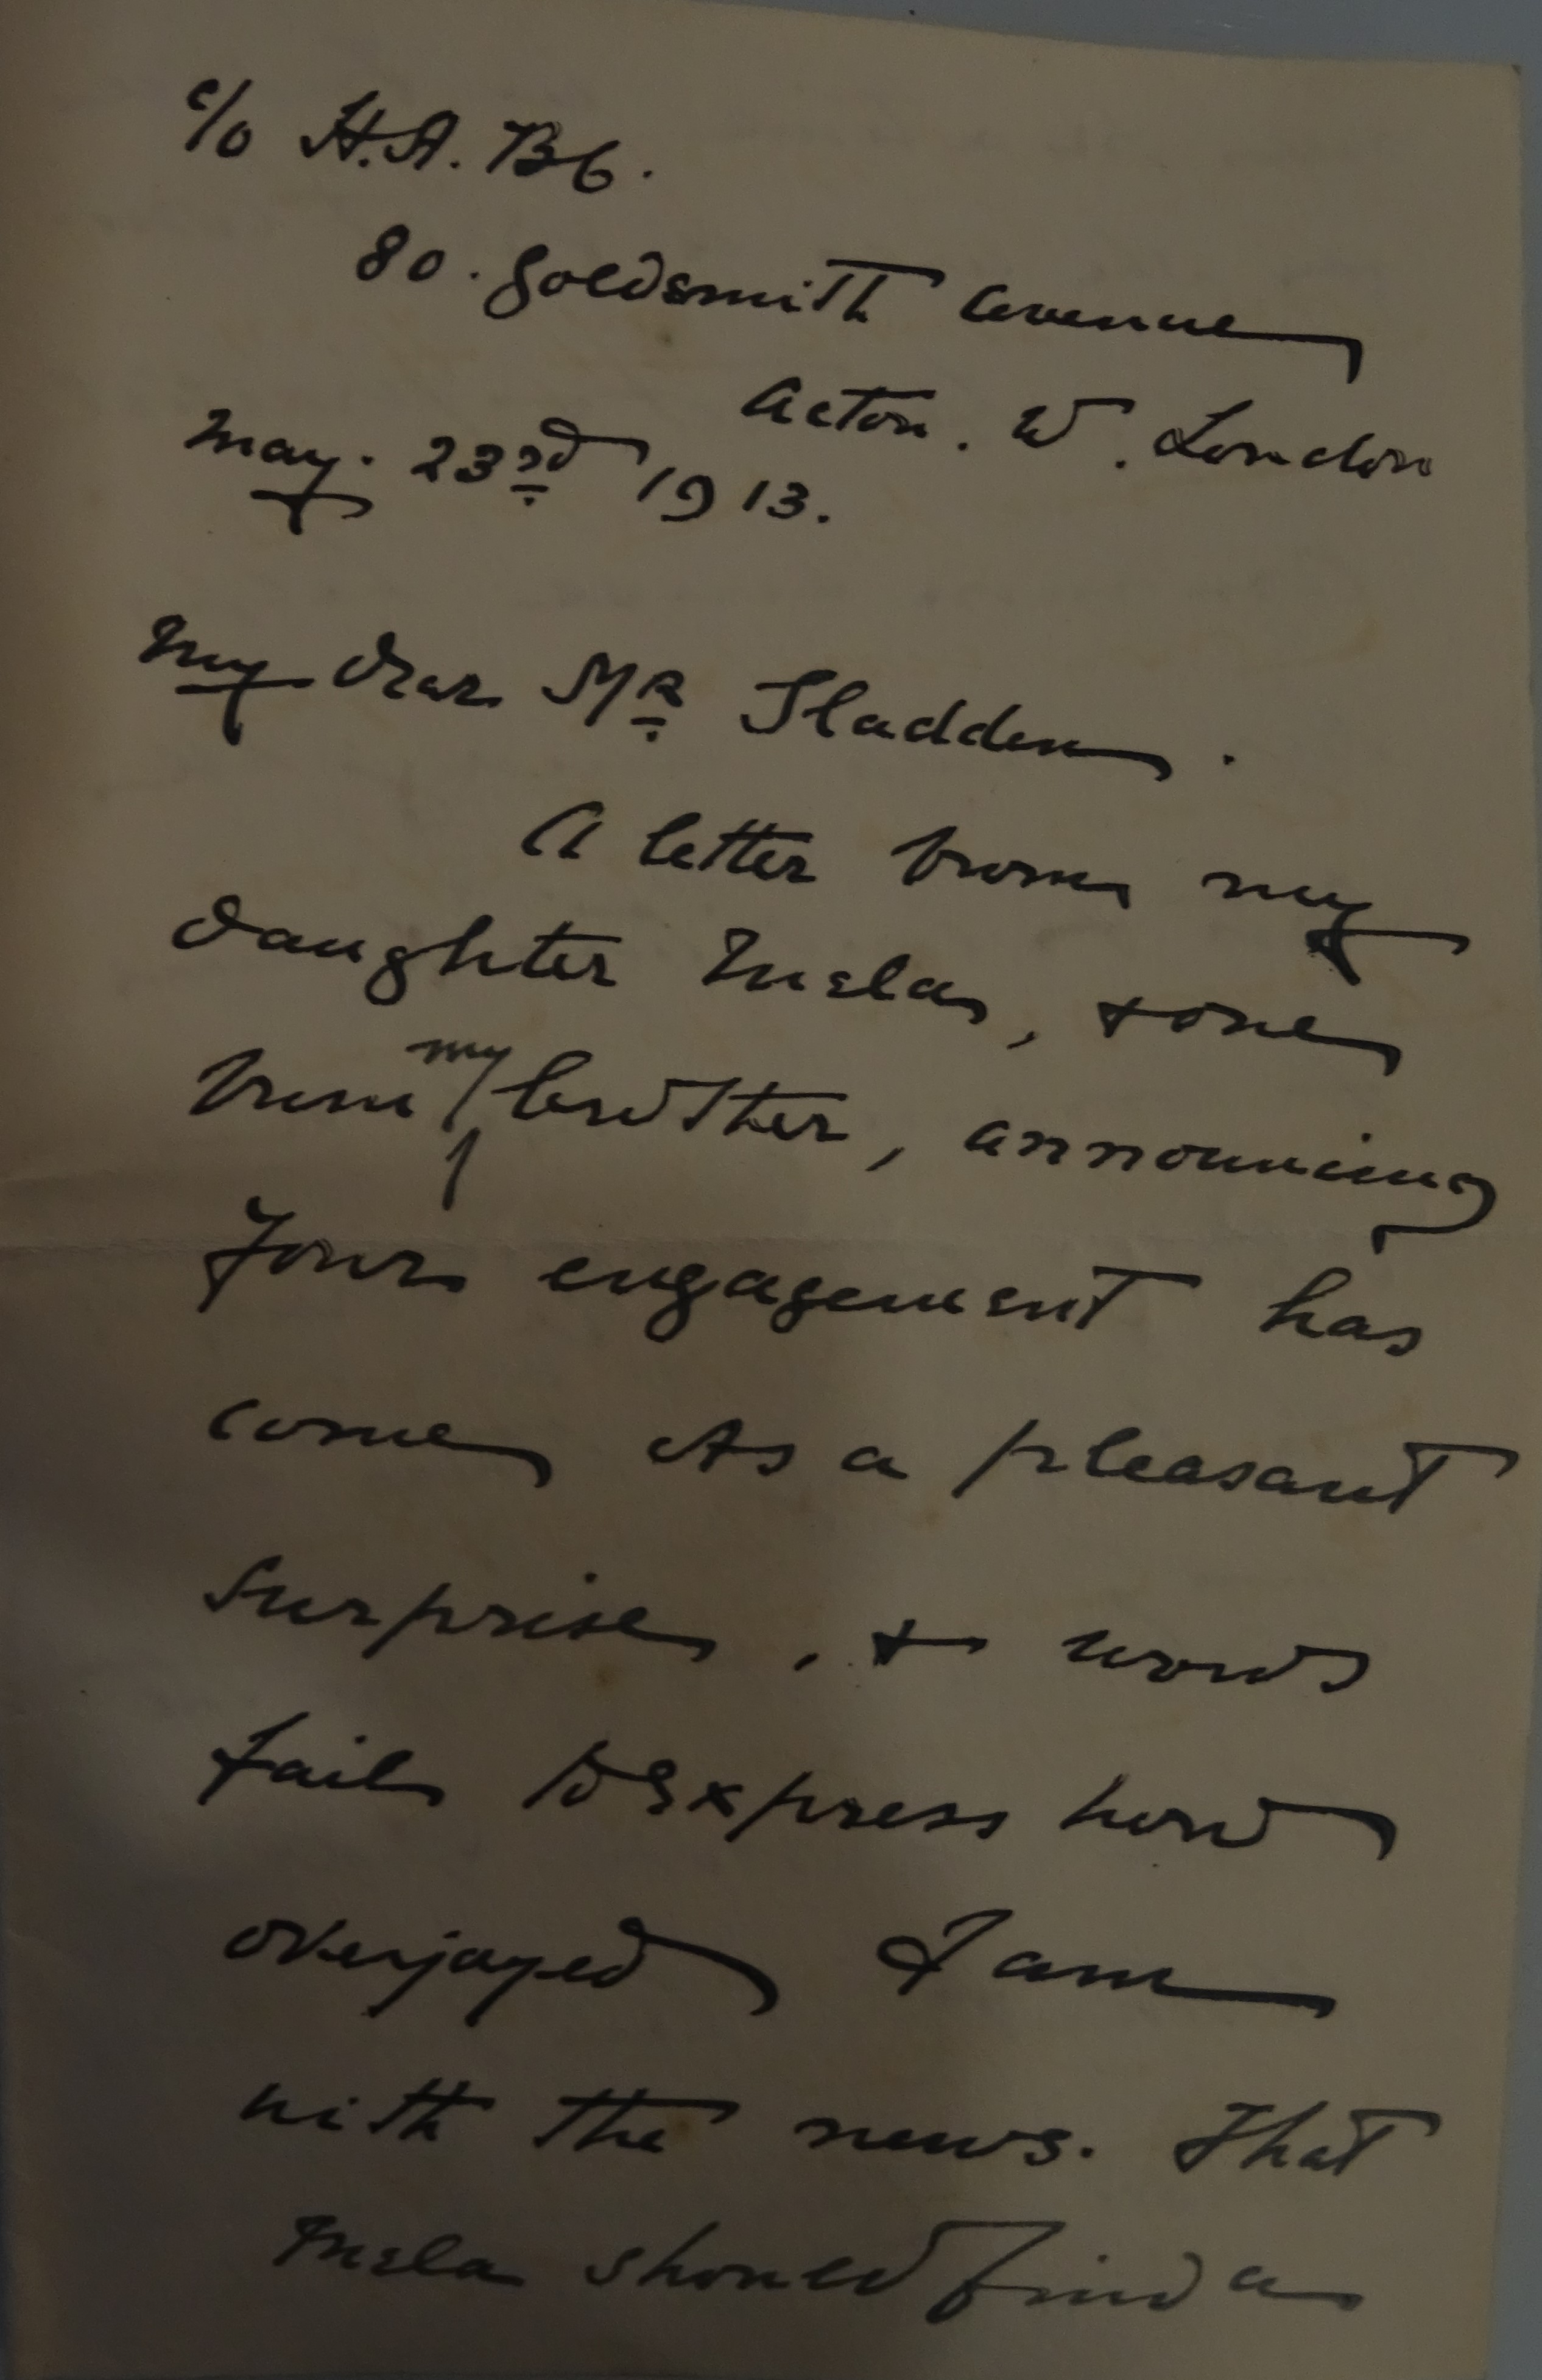 c/o H.A. B6.
80. Goldsmith Avenue
Acton. W. London
May. 23rd 1913.
My dear Mr Sladden.
A letter from my
daughter Mela, + one
from my brother, announcing
your engagement has
come as a pleasant
surprise, + words
fail to express how
overjoyed I am
with the news. That
Mela should find a